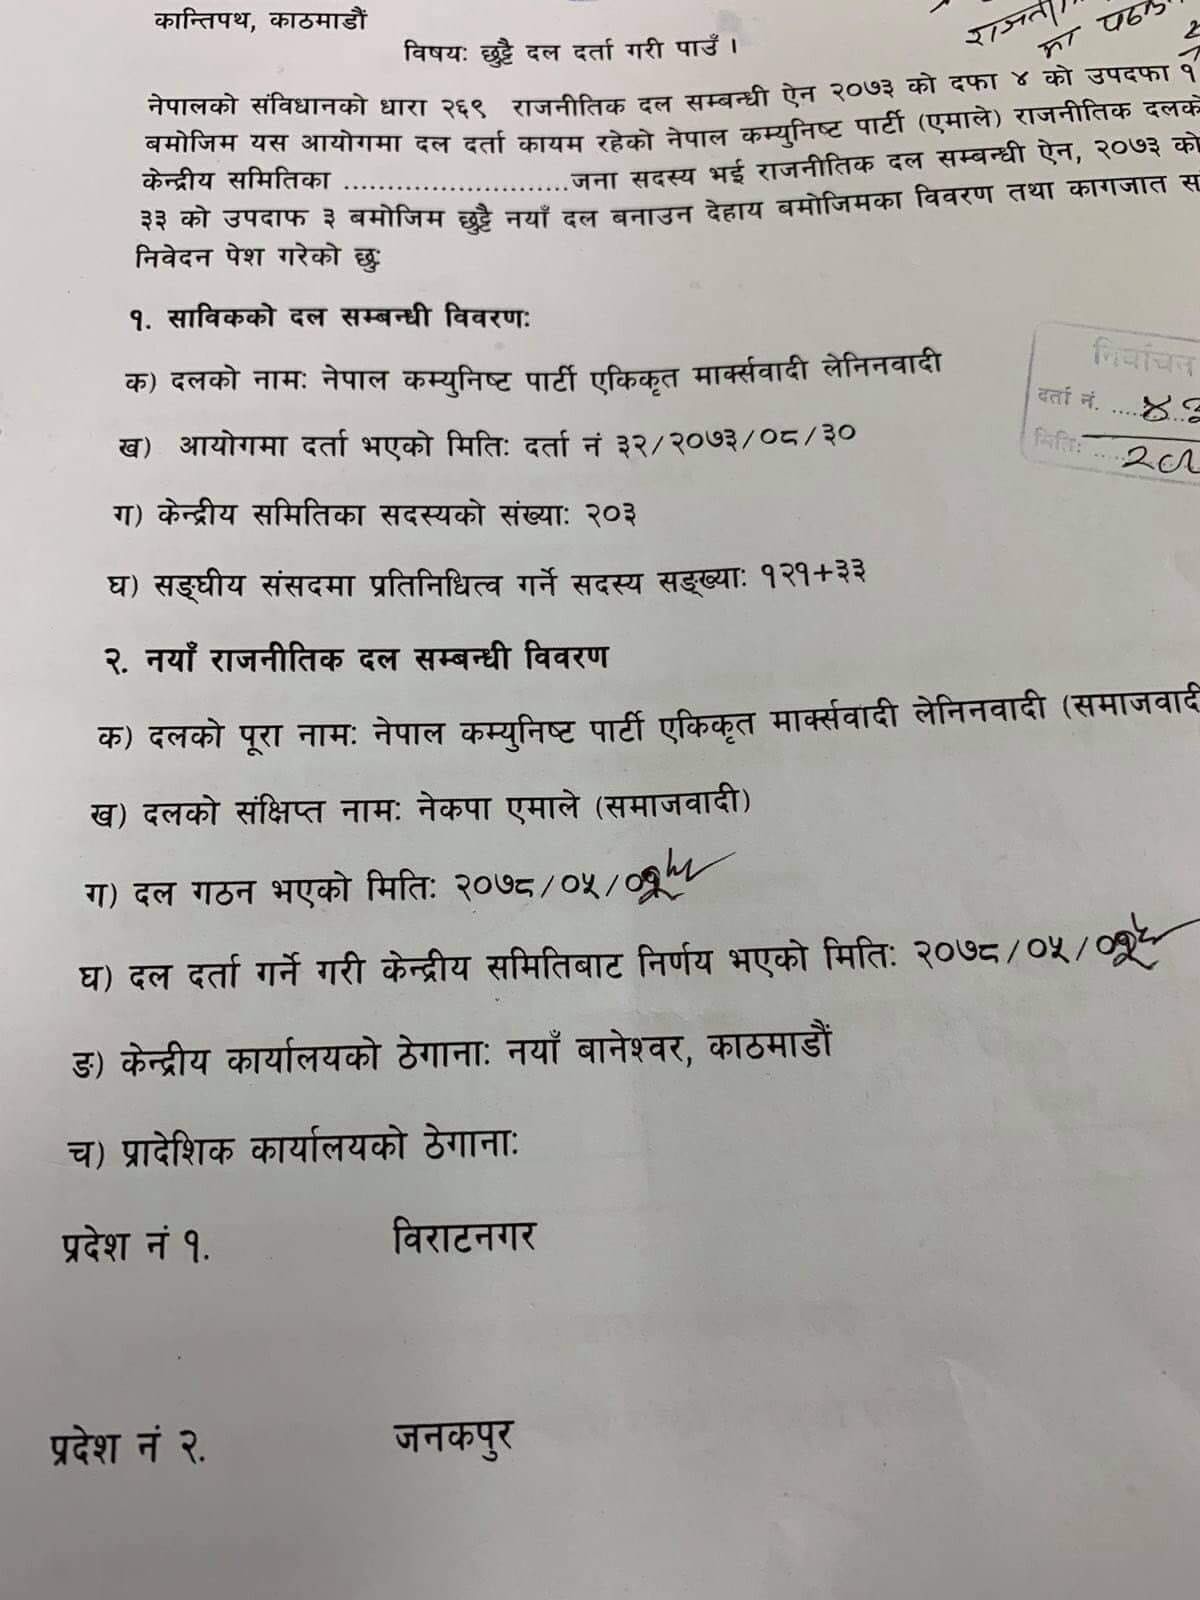 कान्तिपथ, काठमाडौं
विषयः छुट्टै दल दर्ता गरी पाउँ ।
नेपालको संविधानको धारा २६९ राजनीतिक दल सम्बन्धी ऐन २०७३ को दफा ४ को उपदफा १
बमोजिम यस आयोगमा दल दर्ता कायम रहेको नेपाल कम्युनिष्ट पार्टी (एमाले) राजनीतिक दलको
केन्द्रीय समितिका ..........................जना सदस्य भई राजनीतिक दल सम्बन्धी ऐन, २०७३ को
३३ को उपदाफ ३ बमोजिम छुट्टै नयाँ दल बनाउन देहाय बमोजिमका विवरण तथा कागजात स
निवेदन पेश गरेको छुः
१. साविकको दल सम्बन्धी विवरणः
क) दलको नामः नेपाल कम्युनिष्ट पार्टी एकिकृत मार्क्सवादी लेनिनवादी
निर्वाचन
दर्ता नं. ......
मितिः .....
ख) आयोगमा दर्ता भएको मितिः दर्ता नं ३२/२०७३/०८/३०
ग) केन्द्रीय समितिका सदस्यको संख्याः २०३
घ) सङ्घीय संसदमा प्रतिनिधित्व गर्ने सदस्य सङ्ख्याः १२१+३३
२. नयाँ राजनीतिक दल सम्बन्धी विवरण
क) दलको पूरा नामः नेपाल कम्युनिष्ट पार्टी एकिकृत मार्क्सवादी लेनिनवादी (समाजवादी
ख) दलको संक्षिप्त नामः नेकपा एमाले (समाजवादी)
ग) दल गठन भएको मितिः २०७८/०५/
घ) दल दर्ता गर्ने गरी केन्द्रीय समितिबाट निर्णय भएको मितिः २०७८/०५/
ङ) केन्द्रीय कार्यालयको ठेगानाः नयाँ बानेश्वर, काठमाडौं
च) प्रादेशिक कार्यालयको ठेगानाः
प्रदेश नं १. विराटनगर
प्रदेश नं २. जनकपुर